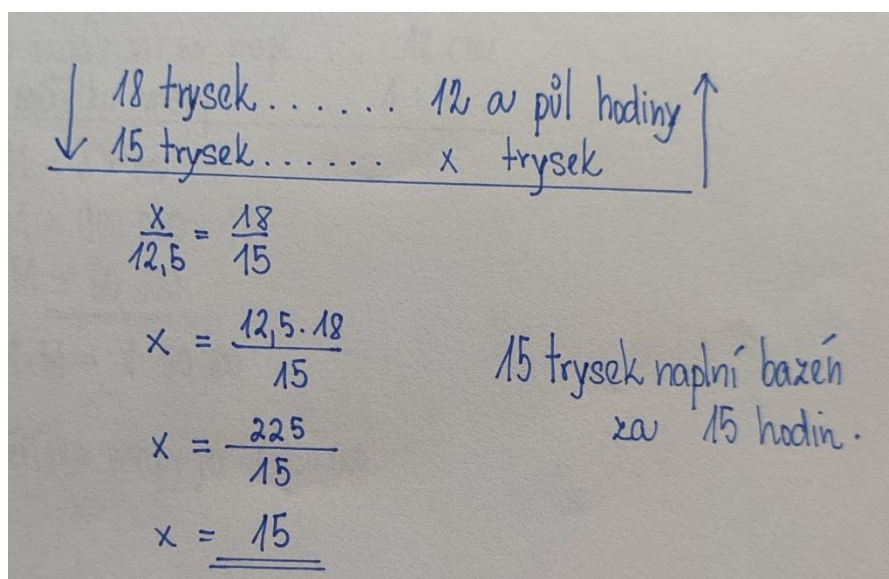 18 trysek...... 12 a půl hodiny
15 trysek...... x trysek
x/12,5 = 18/15
x = 12,5·18/15
x = 225/15
x = 15
15 trysek naplní bazén
za 15 hodin.